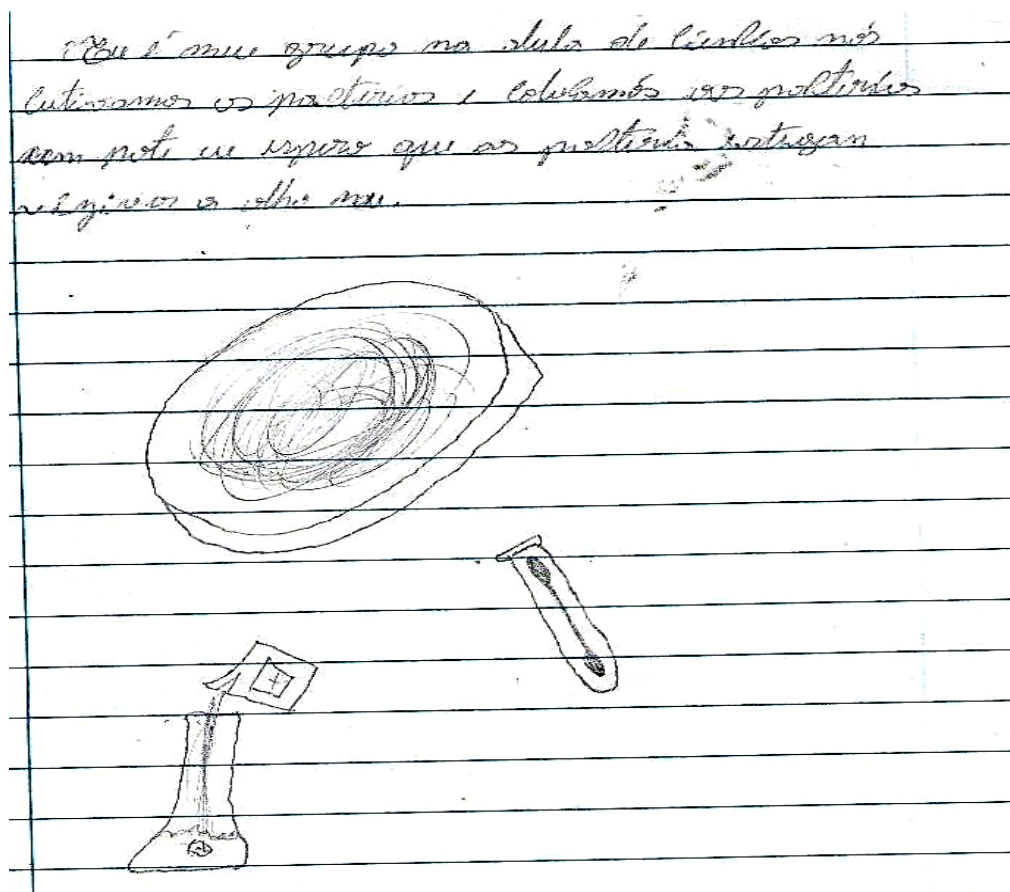 Eu é meu grupo na aula de Ciencias nós
cutivamos as bacterias e colocamos as bacterias
em pote eu espero que as bacteria estejan
a olho nu.